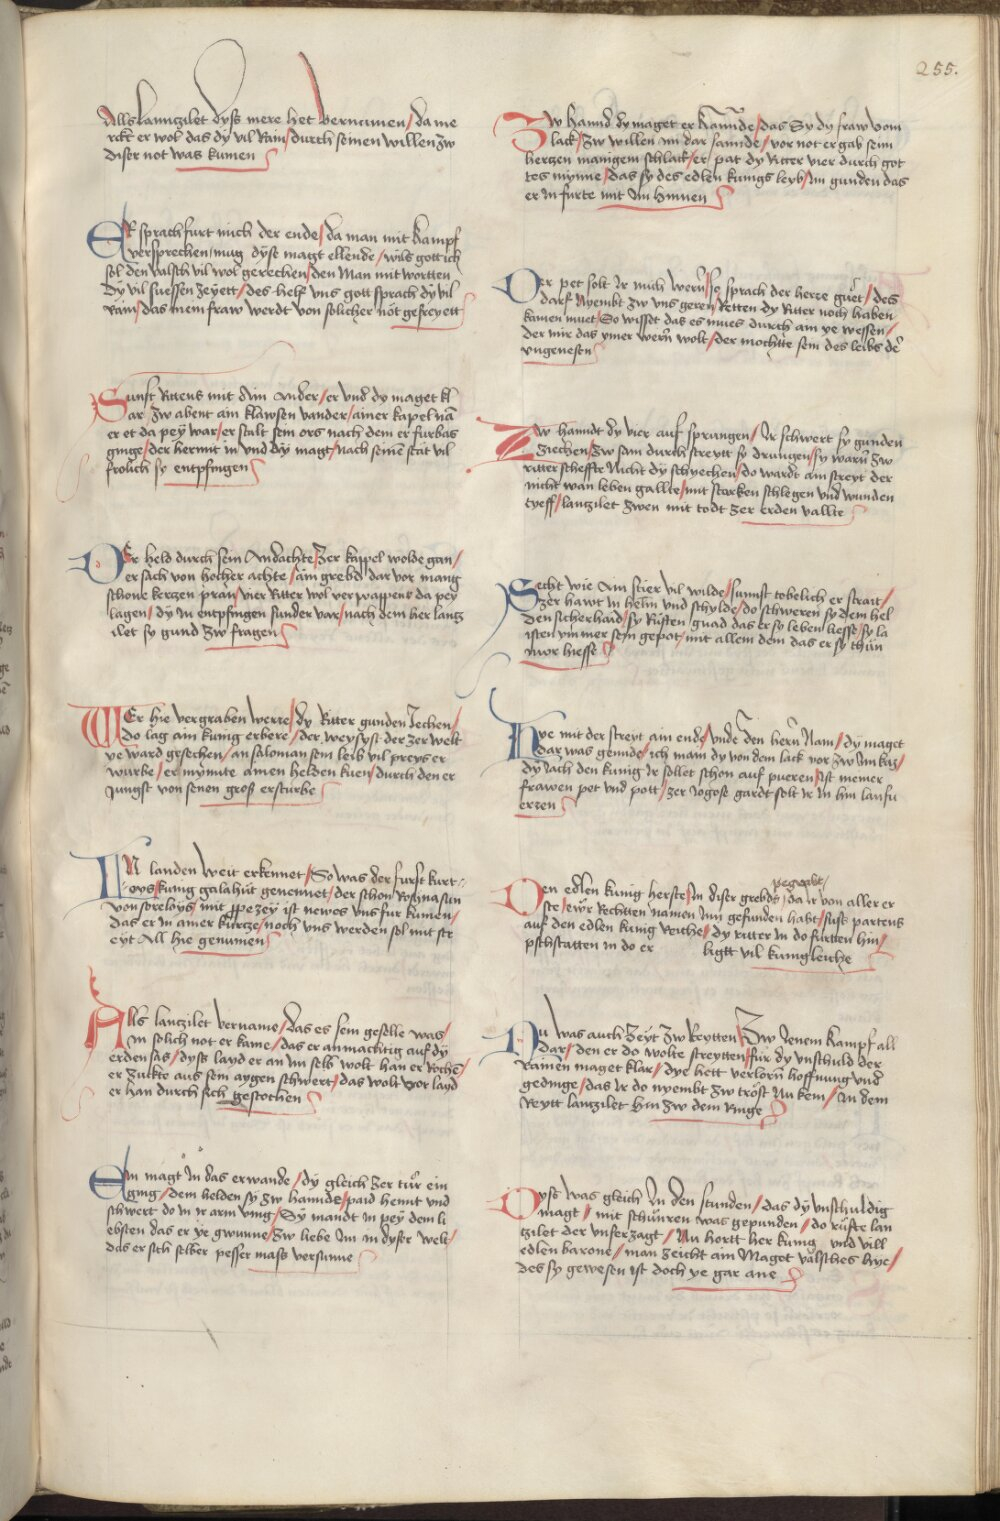 255.
Alls lannzilet dyse mere het vernumen / da me
rckt er wol das dy vil Rain / durch seinen willen zw
diser not was kumen
Er sprach furt mich der ende / da man mit kampf
versprechen mug dyse magt ellende / wils gott ich
sol den valsch vil wol gerechen / den Man mit wortten
Dy vil suessen zeyett / des helf vns gott sprach dy vil
Rain / das mein fraw werdt von solicher not gefreyett
Sunst Rittens mit ain Ander / er vnd dy maget kl
ar zw abent ain klawsen vander / ainer kapel nā
er et da pey war / er stalt sein ors nach dem er furbas
ginge / der hermit in vnd dy magt / nach seinē stat vil
frolich sy entpfingen
Der held durch sein Andachte / zer kappel wolde gan /
er sach von hocher achte / ain grebd dar vor mang
schone kerzen pran / vier Ritter wol verwappent da pey
lagen / dy in entpfingen sunder var / nach dem her lantz
ilet sy gund zw fragen
Wer hie vergraben werre / dy Ritter gunden Jechen /
do lag ain kunig erbere / der weysyst der zer welt
ye ward gesechen / an saloman sein leib vil preys er
wurbe / er mynnte ainen helden kuen / durch den er
Jungst von senen gros ersturbe
In landen weit erkennet / So was der furst kurt
oys / kunig galahut genennet / der schon Roynasun
von soreloys / mit ppezey ist newes vns fur kumen /
das er in ainer kurtze / noch vns werden sol mit str
eyt All hie genumen
Alls lanczilet vername / das es sein geselle was /
in solich not er kame / das er anmachtig auf dy
erden sas / dyss layd er an im selb wolt han er roche /
er zuckte aus sein aygen schwert / das wolt vor layd
er han durch sich gestochen
Ein magt In das erwande / dy gleich zer tur ein
ging / dem helden sy zw hannde / paid hennt vnd
schwert do in ir arm ving / Sy mandt in pey dem li
ebsten das er ye gwunne / zw liebe Im in dyser welt /
das er sich selber pesser mass versunne
Zw hannd dy maget er kannde / das Sy dy fraw vom
lack / zw willen im dar sannde / vor not er gab sein
hertzen manigem schlack / er pat dy Ritter vier durch got
tes mynne / das sy des edlen kunigs leyb / im gunden das
er in furte mit im hinnen
Der pet solt Ir mich wern / so sprach der herre guet / des
darf nyembt zw vns geren / Retten dy Ritter noch haben
kainen muet / So wisset das es mues durch ain ye wessen /
der mir das ymer wern wolt / der mochtte sein des leibs dē
vngenesen
Zw hanndt dy vier auf sprungen / Ir schwert sy gunden
ziechen / zw sam durch streytt sy drungen / sy warn zw
ritterscheffte Nicht dy schyechen / do wardt ain streyt der
nicht wan leben gallte / mit starken schlegen vnd wunden
tyeff / lanczilet zwen mit todt zer erden vallte
Secht wie Ain stier vil wilde / sunst tobelich er strait /
zer hawt in helm vnd schylde / do schweren sy dem hel
den sicherhaid / sy Rusten gnad das er so leben liesse / sy la
isten ym mer sein gepot / mit allem dem das er sy thun
mer hiesse
Hye mit der streyt ain ende / vnde den hern Nam / dy maget
dar was gennde / ich main dy von dem lack vor zw im kā /
dy Jach den kunig Ir sollet schon auf pueren / Ist meiner
frawen pet vnd pott / zer Jogose gardt solt Ir in hin lan fu
eren
Den edlen kunig herste / In diser grebde / pegrabt / da Ir von aller er
ste / ewr Rechtten namen Inn gefunden habt / suss partens
auf den edlen kung Reiche / dy ritter in do furtten hin /
pschstatten in do er ligtt vil kuniglaiche
Nu was auch Zeyt zw Reytten / Zw Jenem kampf all
dar / den er do wolte streytten / fur dy vnschuld der
Rainen maget klar / dye hett verlorn hoffnung vnd
gedinge / das Ir do nyembt zw trost Nu kem / In dem
Reytt lanczilet hin zw dem Ringe
Dyss was gleich In den stunden / das dy vnschuldig
magt / mit schnuren was gepunden / do rufte lan
tzilet der vnferzagt / Nu hortt her kunig vnd vill
edlen barone / man zeicht ain Maget valsches hye /
des sy gewesen ist doch ye gar ane